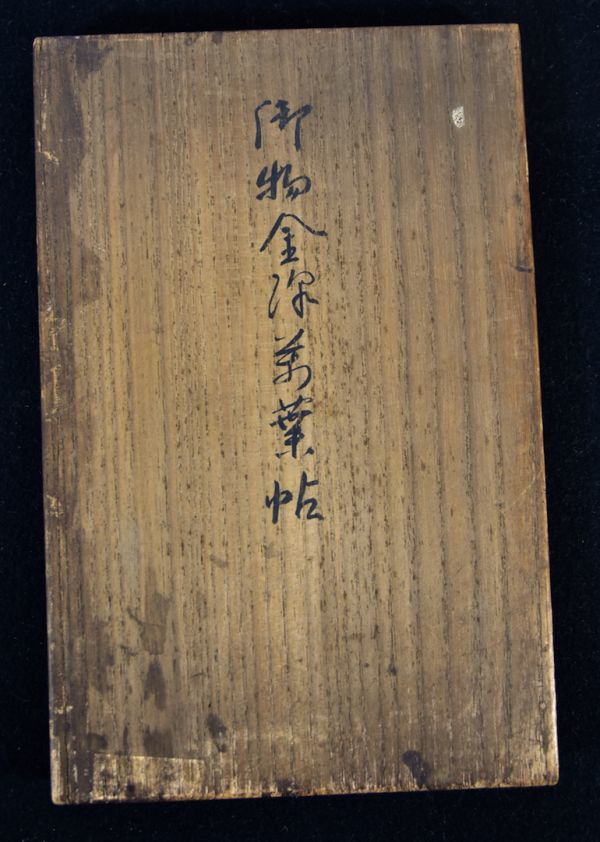 御物金沢萬葉帖